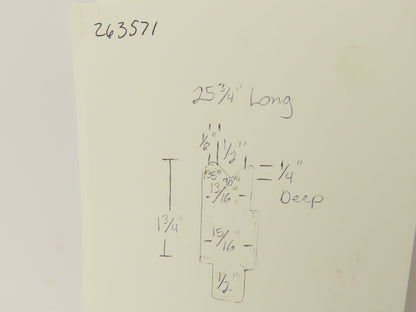 263571
25 3/4" Long
1/2"
1/2"
1/4"
Deep
135° 90°
13/16"
1 3/4"
15/16"
1/2"